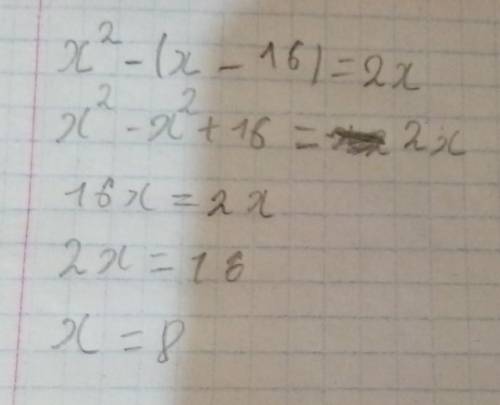 x² - (x - 16) = 2x
x² - x² + 16 = 2x
16x = 2x
2x = 16
x = 8